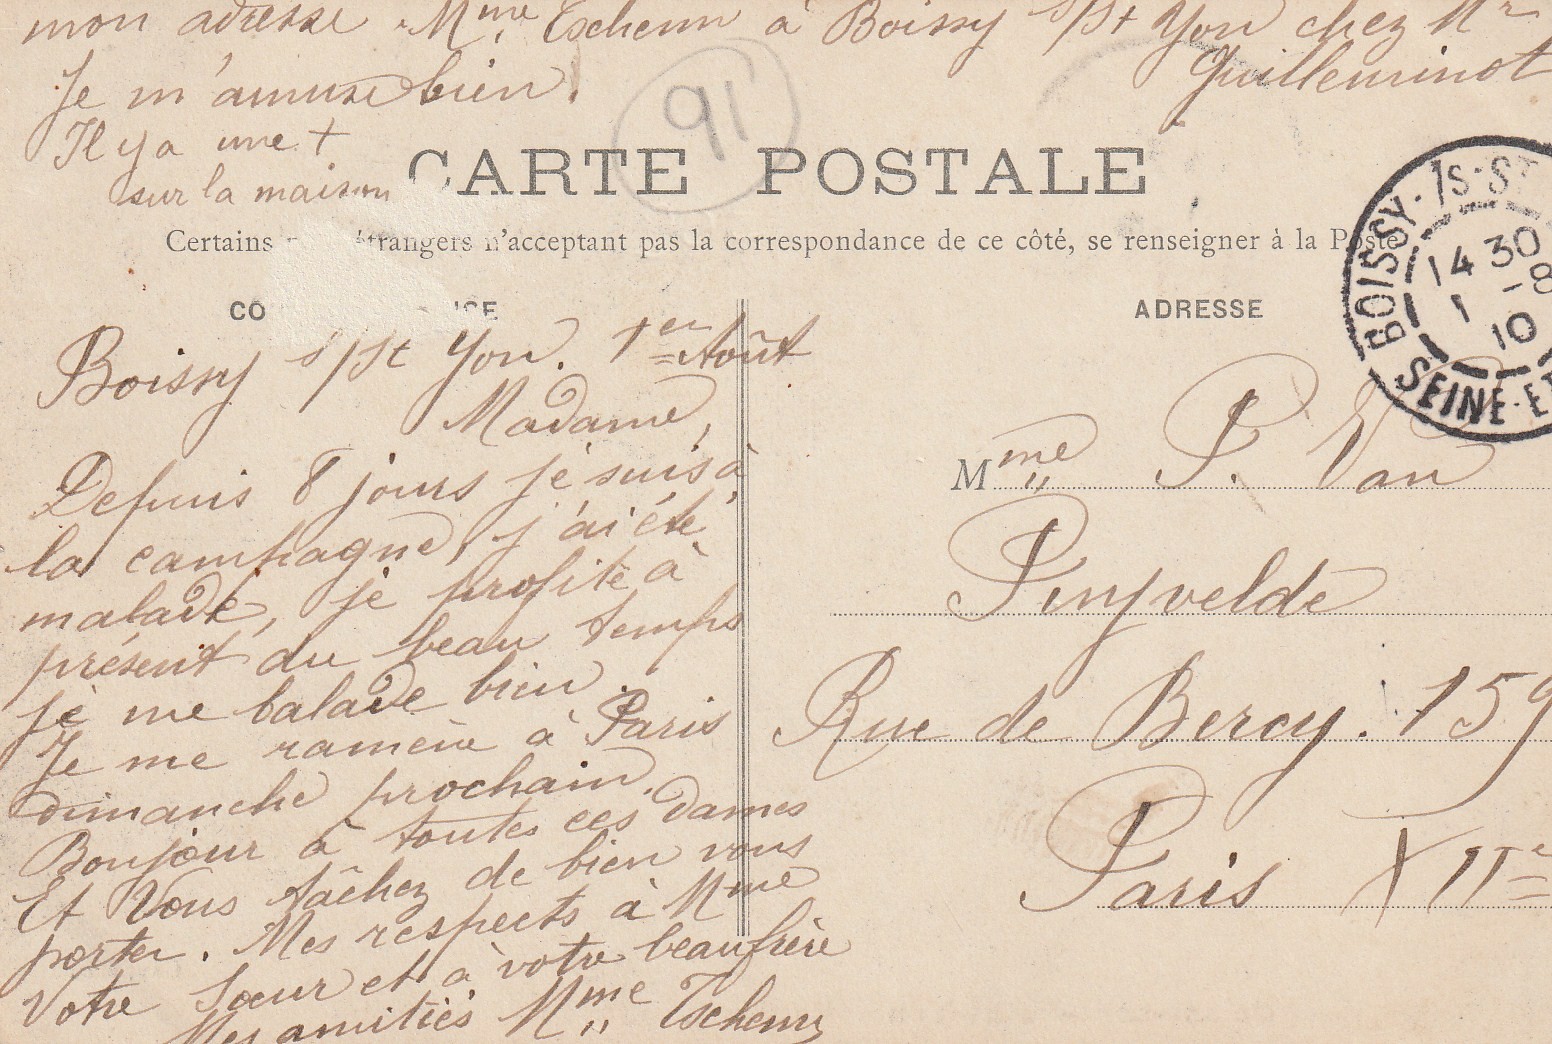 mon adresse. Mme Tschenn à Boissy s/St Yon chez Mr
Guilleminot
Je m'amuse bien.
Il y a une +
sur la maison
91
CARTE POSTALE
Certains étrangers n'acceptant pas la correspondance de ce côté, se renseigner à la Poste
CO NCE
ADRESSE
BOISSY-/S-ST
14 30
1 -8
10
SEINE-E
Boissy s/St Yon. 1er Août
Madame,
Depuis 8 jours je suis à
la campagne, j'ai été
malade, je profite à
présent du beau temps
je me balade bien.
Je me ramène à Paris
dimanche prochain.
Bonjour à toutes ces dames
Et Vous tâchez de bien vous
porter. Mes respects à Mme
Votre Sœur et à votre beaufrère
Mes amitiés Mme Tschenn
Mme P. Van
Pinyvelde
Rue de Bercy. 159
Paris XIIe